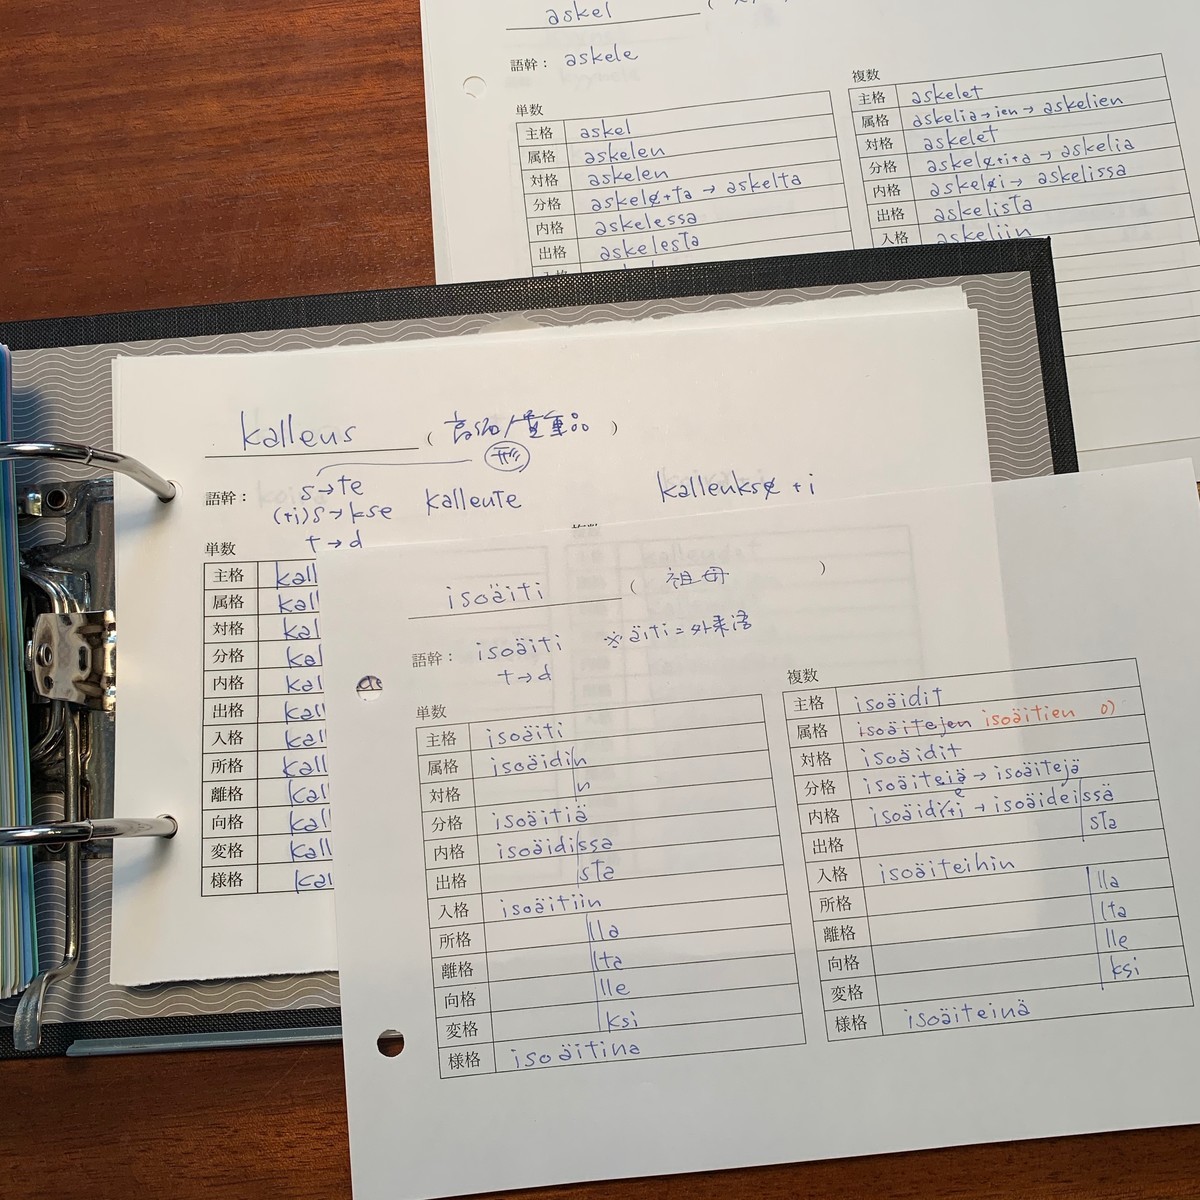 askel (
語幹： askele
単数
主格 askel
属格 askelen
対格 askelen
分格 askele+ta → askelta
内格 askelessa
出格 askelesta
複数
主格 askelet
属格 askelia→ien→askelien
対格 askelet
分格 askele+i+a → askelia
内格 askelei→ askelissa
出格 askelista
入格 askeliin
kalleus ( 高価/貴重品 )
形
語幹： s→te kalleute kalleukse +i
(+i)s→kse
t→d
単数
主格 kall
属格 kall
対格 kal
分格 kal
内格 kal
出格 kall
入格 kall
所格 kall
離格 kal
向格 kall
変格 kall
様格 kal
isoäiti ( 祖母 )
語幹： isoäiti ※äiti=外来語
t→d
単数
主格 isoäiti
属格 isoäidin
対格 n
分格 isoäitiä
内格 isoäidissa
出格 sta
入格 isoäitiin
所格 lla
離格 lta
向格 lle
変格 ksi
様格 isoäitina
複数
主格 isoäidit
属格 isoäitejen isoäitien
対格 isoäidit
分格 isoäiteiä → isoäitejä
内格 isoäidi+i → isoäideissä
e
出格 sta
入格 isoäiteihin
所格 lla
離格 lta
向格 lle
変格 ksi
様格 isoäiteinä